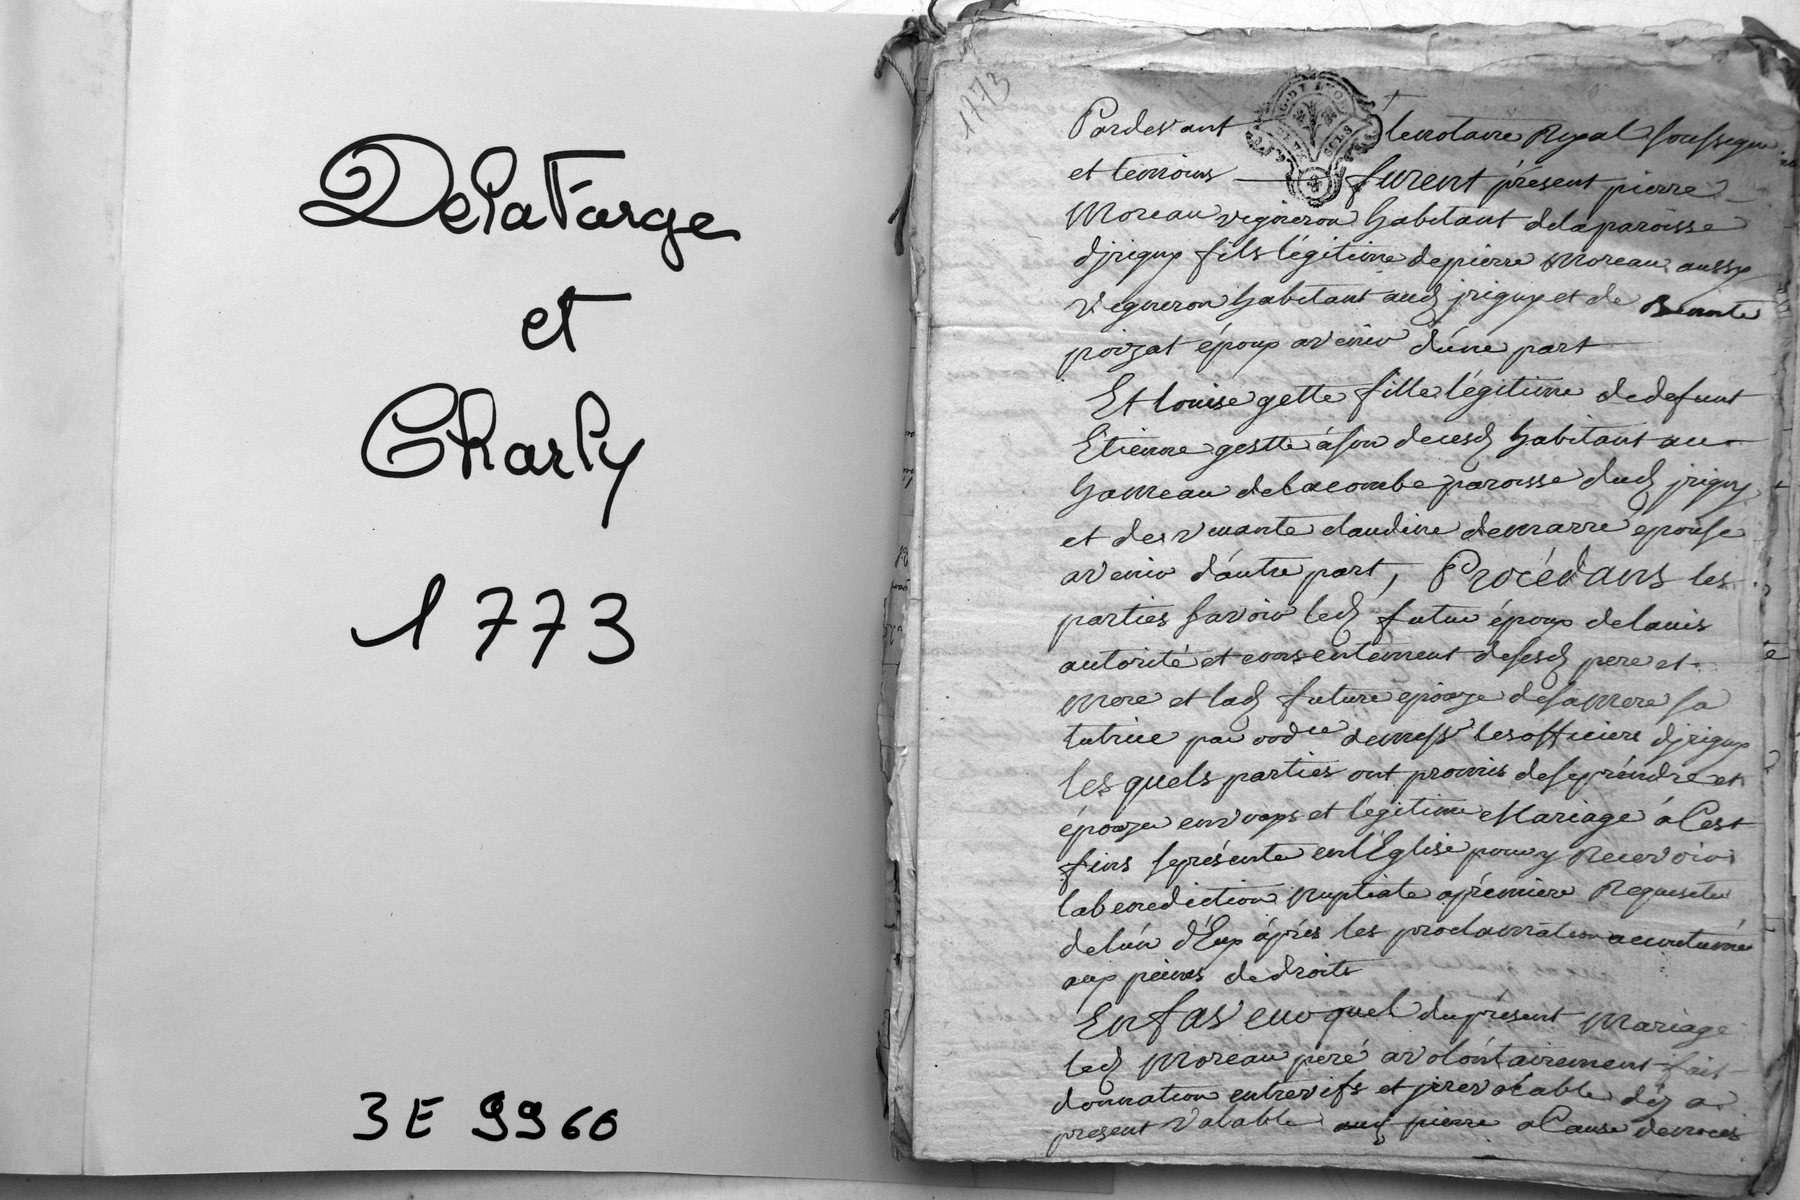 DelaFarge
et
Charly
1773
3 E 9960
1773
Pardevant le notaire Royal soussigne
et temoins furent présent pierre
Moreau vigneron habitant dela paroisse
djrigny fils légitime de pierre Moreau aussy
vigneron habitant aud jrigny et de Benoite
poizat époux avenir d'une part
Et Louise gette fille légitime de defunt
Etienne gette à son deced habitant au
hameau de lacombe paroisse dud jrigny
et de vivante claudine demarre epouse
avenir d'autre part, Procédans les
parties savoir led futur époux de lavis
autorité et consentement de sesd pere et
mere et lad future epouze de sa mere sa
tutrice par les officiers djrigny
les quels parties ont promis de se prendre et
épouzer en vrays et légitime Mariage à Cest
fins se présenté en l'Église pour y Recevoir
la benediction nuptiale a première Requisition
de lun d'Eux après les proclamation accoutumé
aux peines de droits
En fav du présent Mariage
led Moreau peré a volontairement fait
donnation entrevifs et jrevocable déz a
present valable aud pierre a Cause de noces